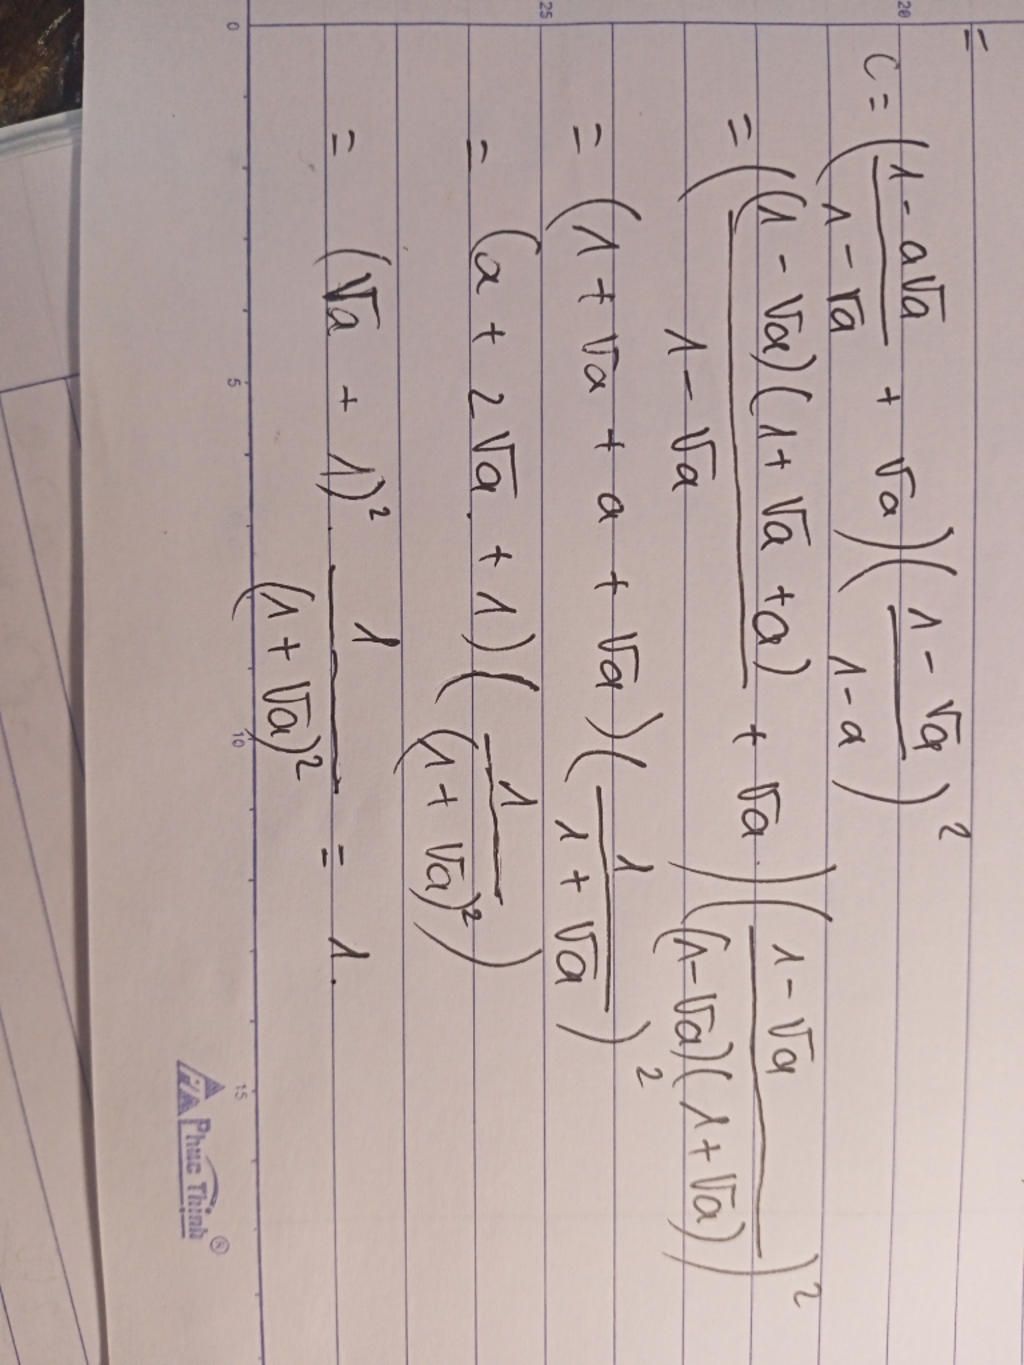 =
C = ( (1 - a√a)/(1 - √a) + √a ) ( (1 - √a)/(1 - a) )²
= ( ((1 - √a)(1 + √a + a))/(1 - √a) + √a ) ( (1 - √a)/((1 - √a)(1 + √a)) )²
= (1 + √a + a + √a) ( 1/(1 + √a) )²
= (a + 2√a + 1) ( 1/(1 + √a)² )
= (√a + 1)² . 1/(1 + √a)² = 1.
0 5 10 15
20
25
Phuc Thinh ®